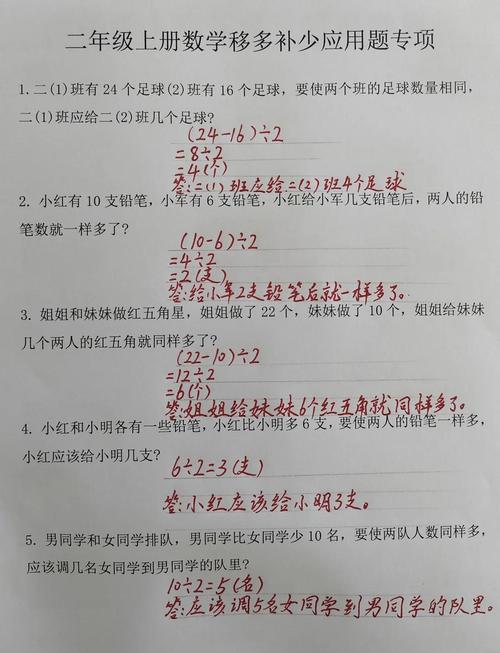 二年级上册数学移多补少应用题专项
1.二(1)班有24个足球(2)班有16个足球，要使两个班的足球数量相同，
二(1)班应给二(2)班几个足球?
(24-16)÷2
=8÷2
=4(个)
答:二(1)班应给二(2)班4个足球
2. 小红有10支铅笔，小军有6支铅笔，小红给小军几支铅笔后，两人的铅
笔数就一样多了?
(10-6)÷2
=4÷2
=2(支)
答:给小军2支铅笔后就一样多了。
3. 姐姐和妹妹做红五角星，姐姐做了22个，妹妹做了10个，姐姐给妹妹
几个两人的红五角就同样多了?
(22-10)÷2
=12÷2
=6(个)
答:姐姐给妹妹6个红五角就同样多了。
4. 小红和小明各有一些铅笔，小红比小明多6支，要使两人的铅笔一样多，
小红应该给小明几支?
6÷2=3(支)
答:小红应该给小明3支。
5. 男同学和女同学排队，男同学比女同学少10名，要使两队人数同样多，
应该调几名女同学到男同学的队里?
10÷2=5(名)
答:应该调5名女同学到男同学的队里。